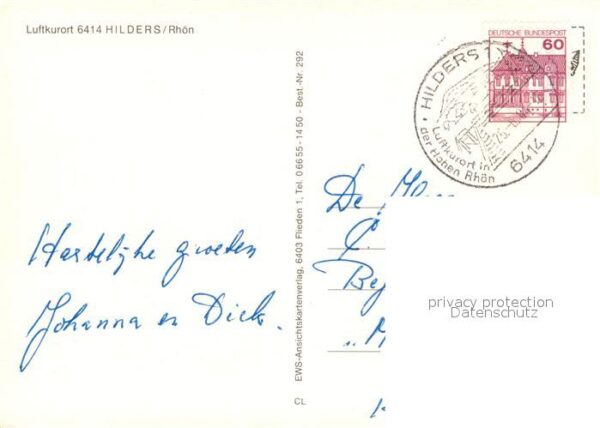 Luftkurort 6414 HILDERS/Rhön
Hartelijke groeten
Johanna en Dick.
EWS-Ansichtskartenverlag, 6403 Flieden 1, Tel. 0 66 55-14 50 - Best.-Nr. 292
CL
DEUTSCHE BUNDESPOST
60
HILDERS 1
Luftkurort in
der Hohen Rhön
6414
De
privacy protection
Datenschutz